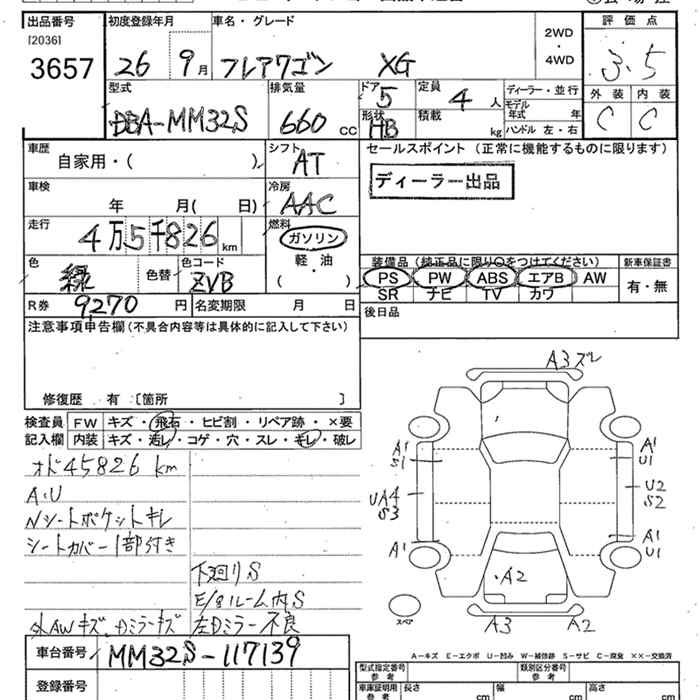 出品番号 初度登録年月 車名・グレード 評価点
[2036]
3657 26 9月 フレアワゴン XG 2WD・4WD 3.5
型式 排気量 ドア 5 定員 4 人 ディーラー・並行 外装 内装
DBA-MM32S 660 CC 形状 HB 積載 kg モデル年式 年 ハンドル 左・右 C C
車歴 シフト セールスポイント (正常に機能するものに限ります)
自家用・( ) AT
ディーラー出品
車検 冷房
年 月( 日) AAC
走行 燃料
4万5千826km ガソリン
軽・油
( )
色 色替 色コード
緑 ZVB
装備品(純正品に限り○をつけてください) 新車保証書
PS PW ABS エアB AW 有・無
SR ナビ TV カワ
R券 9270 円 名変期限 月 日 後日品
注意事項申告欄(不具合内容等は具体的に記入して下さい)
修復歴 有 [箇所 ]
検査員 FW キズ・飛石・ヒビ割・リペア跡・×要
記入欄 内装 キズ・汚レ・コゲ・穴・スレ・キレ・破レ
オド45826 km
A.U
Nシートポケットキレ
シートカバー1部付き
下廻りS
E/gルーム内S
外AWキズ.Dミラーキズ 左Dミラー不良
車台番号 MM32S-117139
登録番号
A3ズレ
A1
S1
A1
U1
UA4
S3
U2
S2
A1
A1
U1
A2
スペア
A3
A2
A-キズ E-エクボ U-凹み W-補修跡 S-サビ C-腐食 XX-交換済
型式指定番号 参考 類別区分番号 参考
車庫証明用 参考 長さ cm 幅 cm 高さ cm